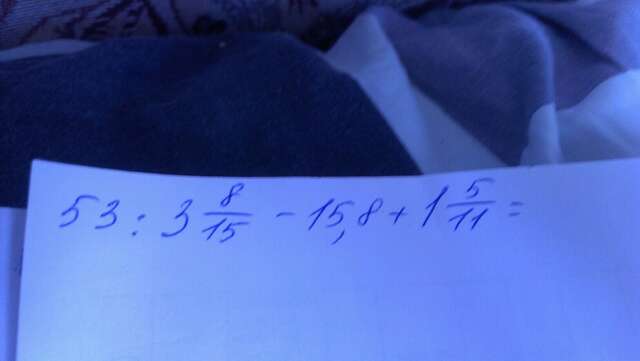 53 : 3 8/15 - 15,8 + 1 5/11 =